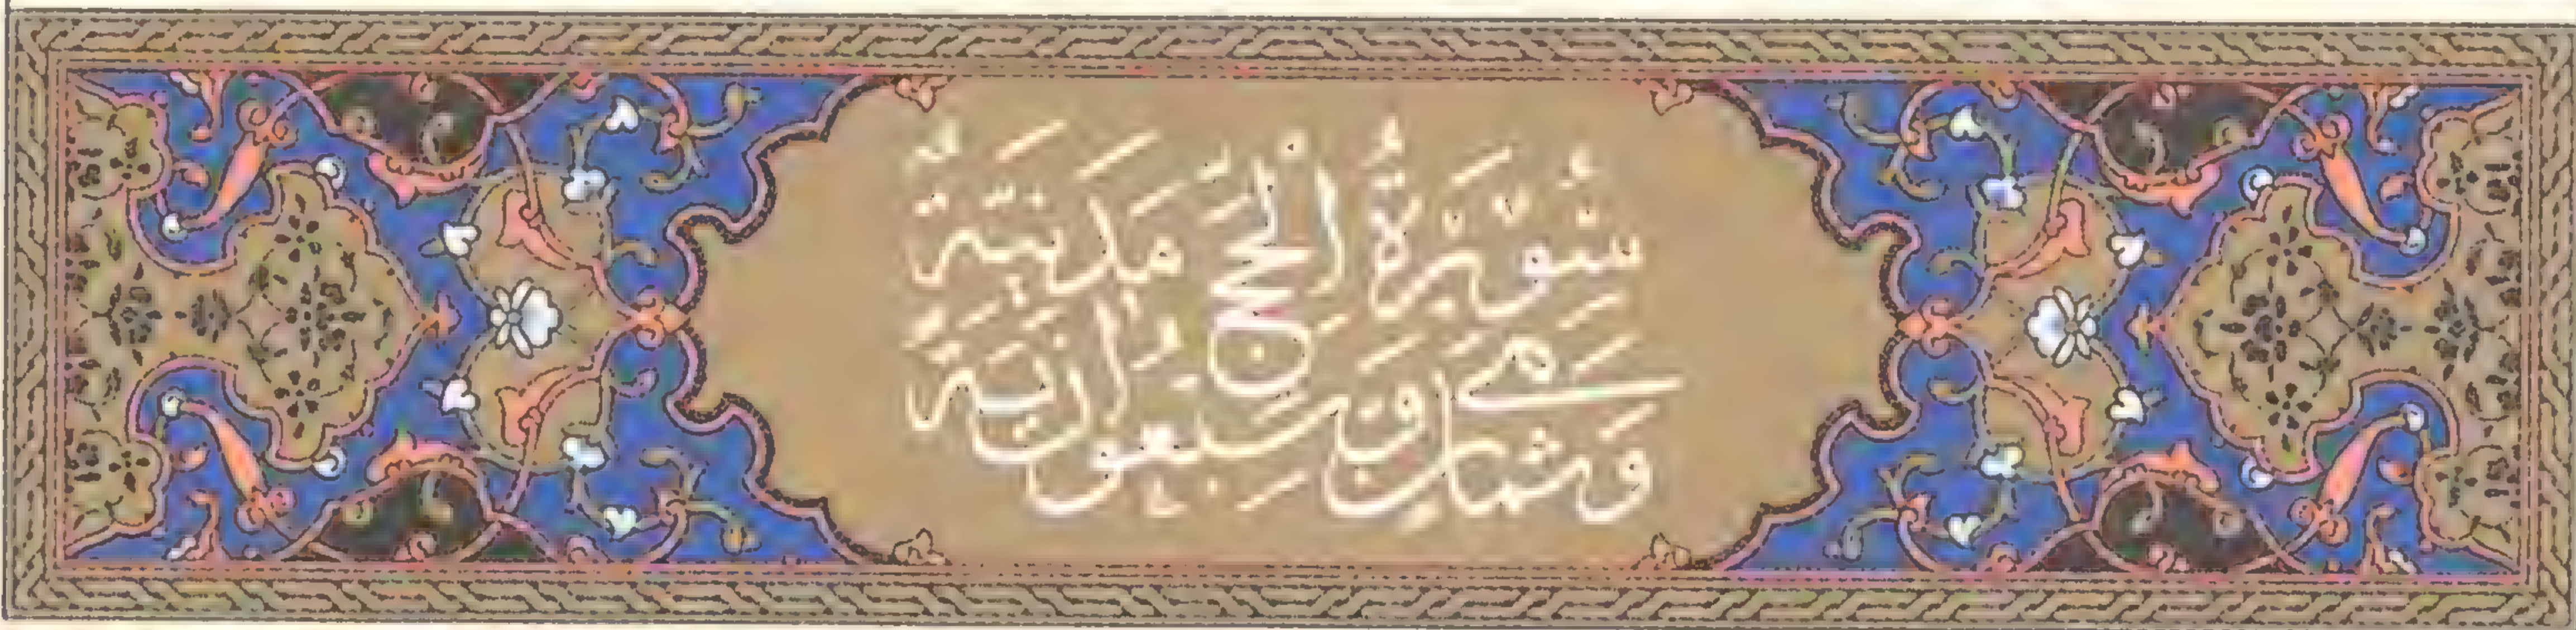 سُورَةُ الْحَجِّ مَدَنِيَّةٌ
وَهِيَ ثَمَانٍ وَسَبْعُونَ آيَةً